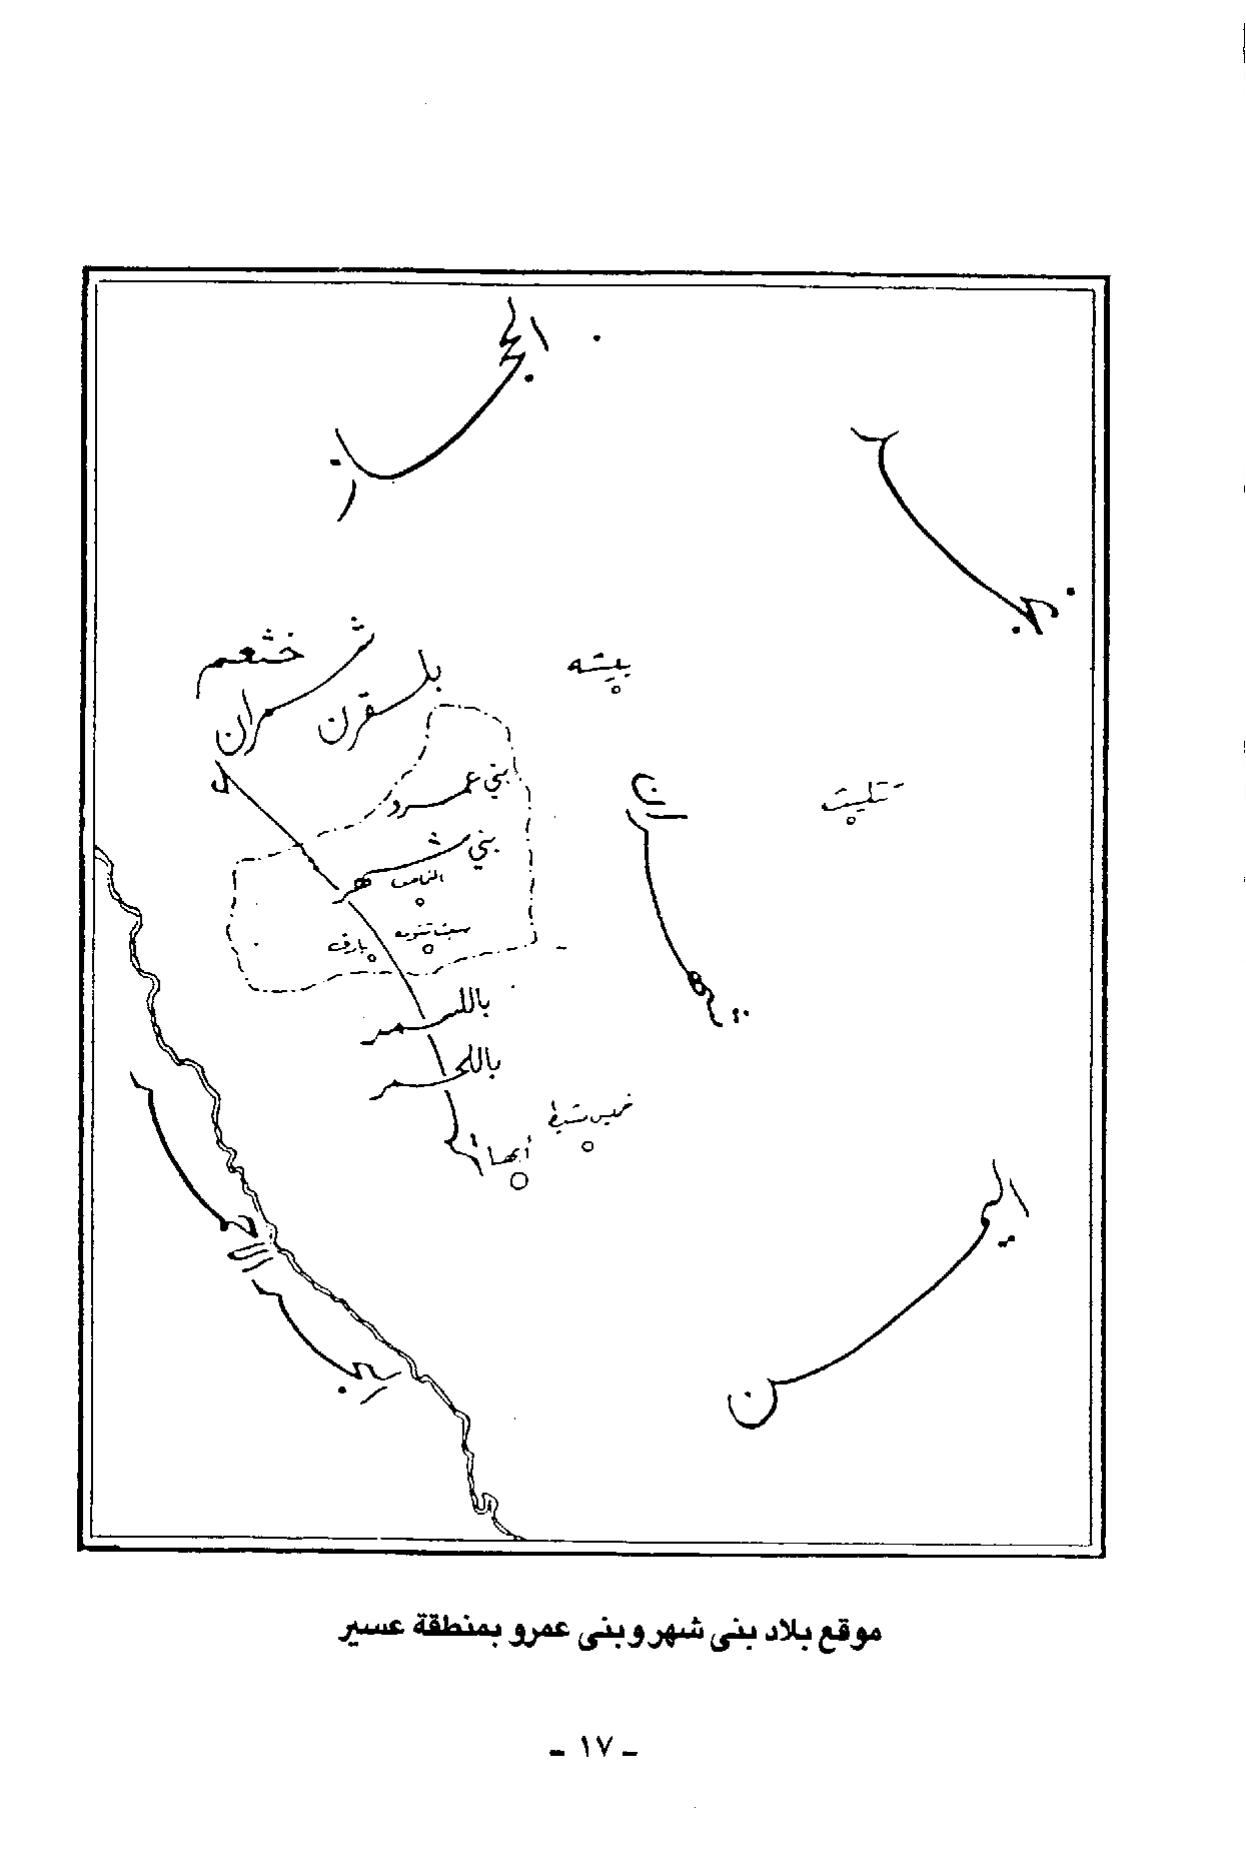 الحجاز
نجد
خثعم
شمران
بلقرن
بيشه
بني عمرو
تثليث
شهران
بني شهر
النماص
سبت تنومه
بارق
باللسمر
باللحمر
خميس مشيط
أبها
البحر
الأحمر
اليمن
موقع بلاد بنى شهر وبنى عمرو بمنطقة عسير
ـ ١٧ ـ